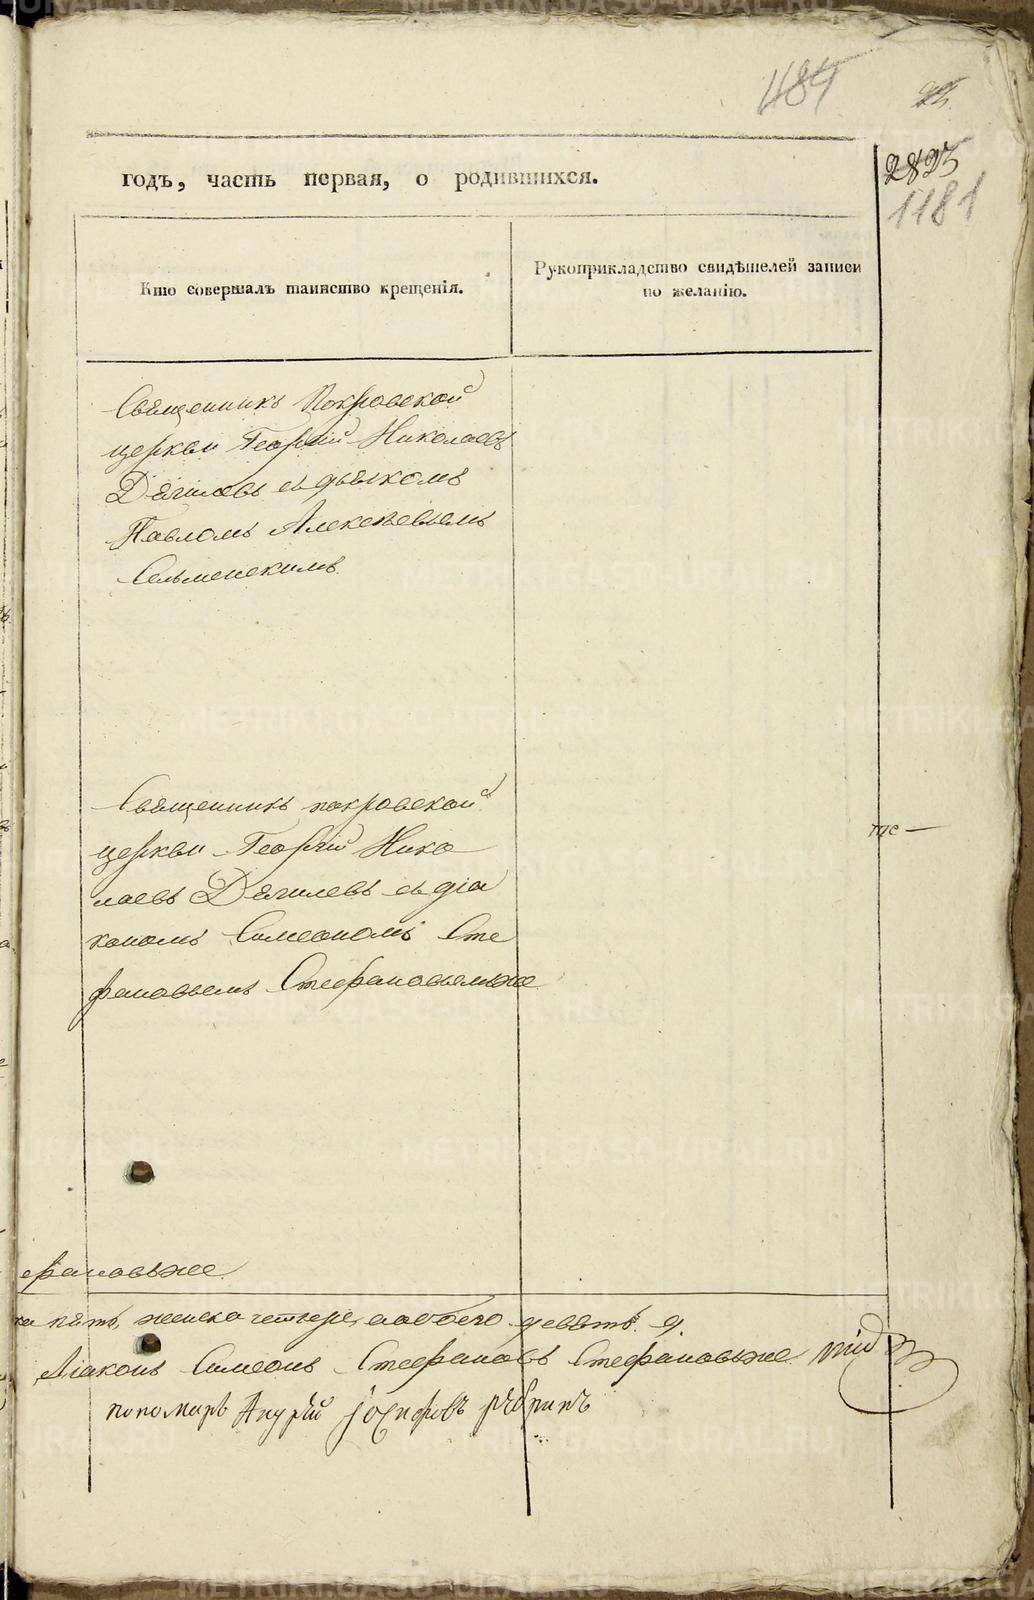 484
2823
1181
годъ, часть первая, о родившихся.
Кто совершалъ таинство крещенія.
Рукоприкладство свидѣтелей записи
по желанію.
Священникъ Покровской
церкви Георгій Николаевъ
Дягилевъ съ дьячкомъ
Павломъ Алексѣевымъ
Сельменскимъ
Священникъ покровской
церкви Георгій Нико
лаевъ Дягилевъ съ діа
кономъ Симеономъ Сте
фановымъ Стефановымъ же
фановъ же
пять, женска четыре, а обоего девять. 9.
Діаконъ Симеонъ Стефановъ Стефановъ же
пономарь Андрей Іосифовъ
METRIKI.GASO-URAL.RU